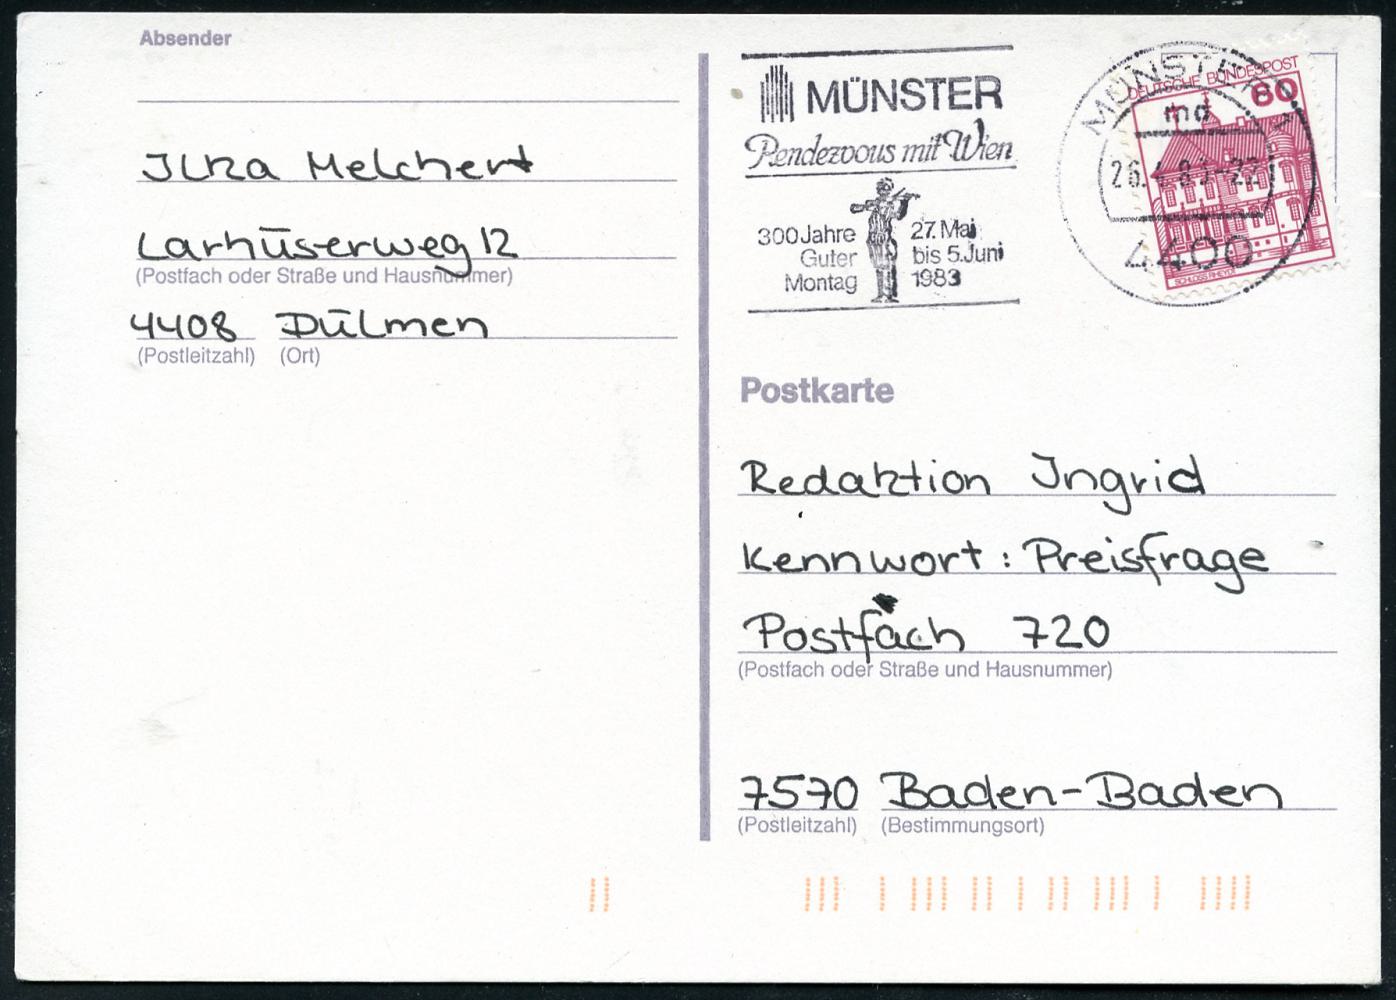 Absender
Ilka Melchert
Larhüserweg 12
(Postfach oder Straße und Hausnummer)
4408 Dülmen
(Postleitzahl) (Ort)
MÜNSTER
Rendezvous mit Wien
300 Jahre
Guter
Montag
27. Mai
bis 5. Juni
1983
MÜNSTER
md
26.4.83-22
4400
DEUTSCHE BUNDESPOST
60
SCHLOSS RHEYDT
Postkarte
Redaktion Ingrid
Kennwort: Preisfrage
Postfach 720
(Postfach oder Straße und Hausnummer)
7570 Baden-Baden
(Postleitzahl) (Bestimmungsort)